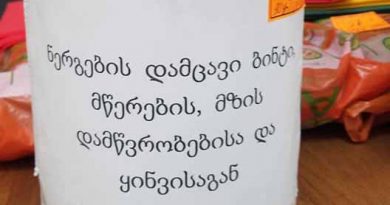 ნერგების დამცავი ბინტი,
მწერების, მზის
დამწვრობებისა და
ყინვისაგან